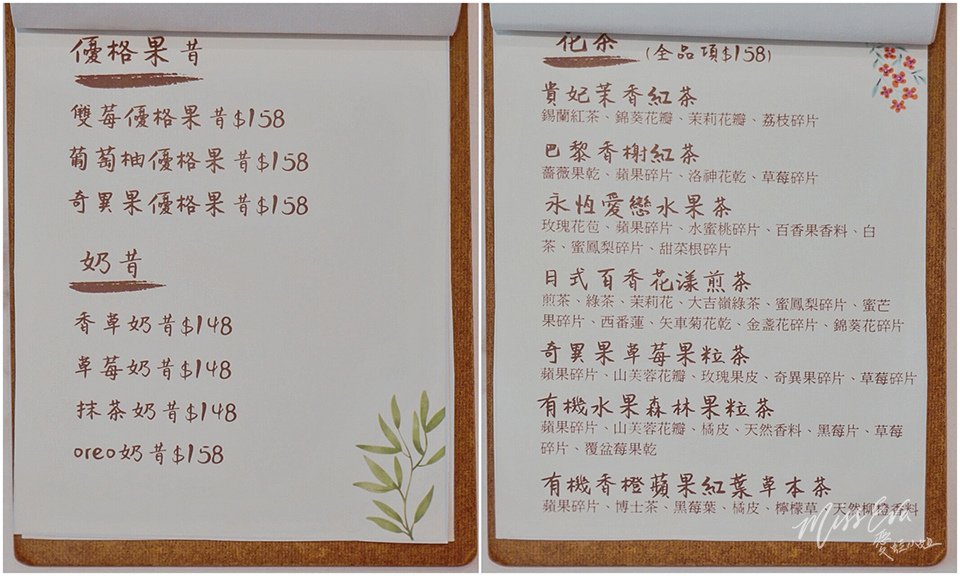 優格果昔
雙莓優格果昔$158
葡萄柚優格果昔$158
奇異果優格果昔$158
奶昔
香草奶昔$148
草莓奶昔$148
抹茶奶昔$148
oreo奶昔$158
花茶 (全品項$158)
貴妃茉香紅茶
錫蘭紅茶、錦葵花瓣、茉莉花瓣、荔枝碎片
巴黎香榭紅茶
薔薇果乾、蘋果碎片、洛神花乾、草莓碎片
永恆愛戀水果茶
玫瑰花苞、蘋果碎片、水蜜桃碎片、百香果香料、白
茶、蜜鳳梨碎片、甜菜根碎片
日式百香花漾煎茶
煎茶、綠茶、茉莉花、大吉嶺綠茶、蜜鳳梨碎片、蜜芒
果碎片、西番蓮、矢車菊花乾、金盞花碎片、錦葵花碎片
奇異果草莓果粒茶
蘋果碎片、山芙蓉花瓣、玫瑰果皮、奇異果碎片、草莓碎片
有機水果森林果粒茶
蘋果碎片、山芙蓉花瓣、橘皮、天然香料、黑莓片、草莓
碎片、覆盆莓果乾
有機香橙蘋果紅葉草本茶
蘋果碎片、博士茶、黑莓葉、橘皮、檸檬草、天然柳橙香料
Miss Era